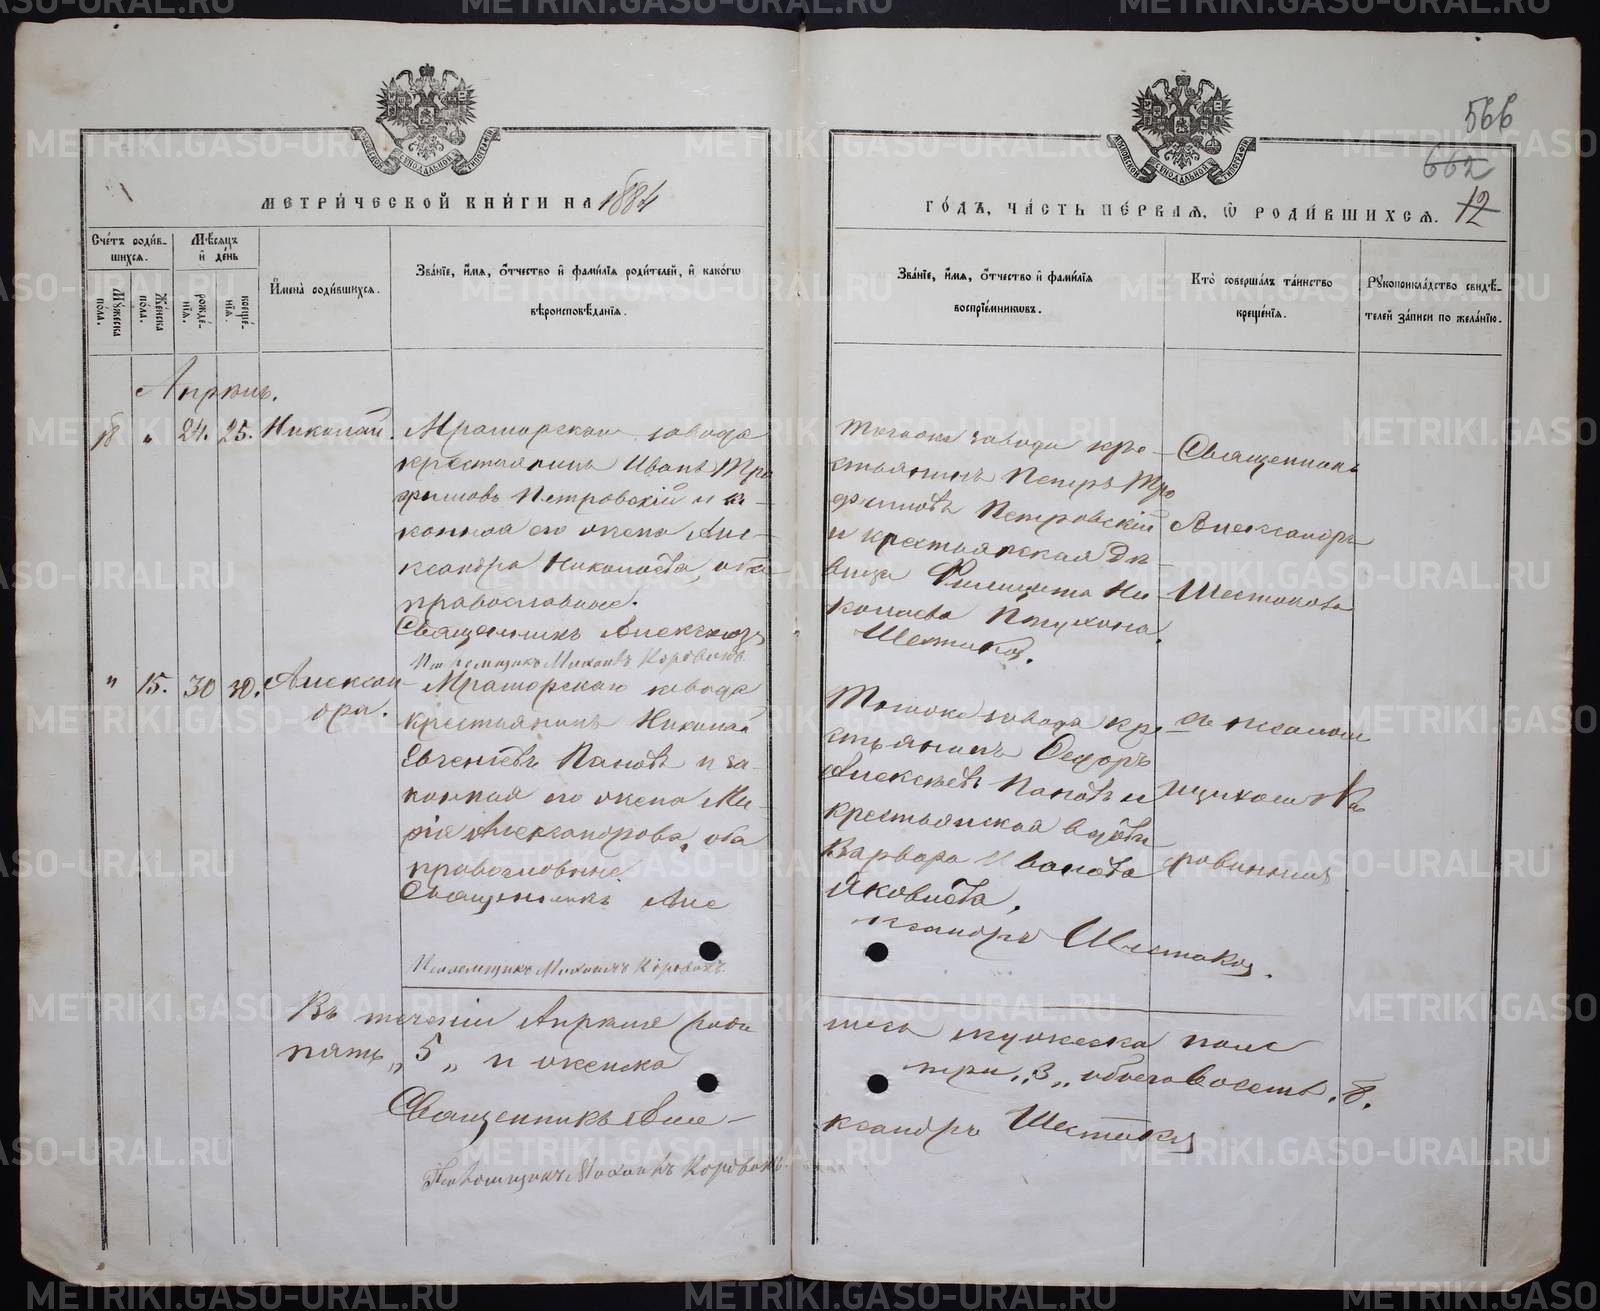 566
662
12
МЕТРИ́ЧЕСКОЙ КНИ́ГИ НА 1884
ГО́ДЪ, ЧА́СТЬ ПЕ́РВАЯ, Ѽ РОДИ́ВШИХСЯ.
Сче́тъ роди́в-
шихся.
Му́жеска по́ла.
Же́нска по́ла.
Мѣ́сяцъ и҆ де́нь
рожде́нїя.
креще́нїя.
И҆мена̀ роди́вшихся.
Зва́нїе, и҆́мя, ѻ҆́тчество и҆ фами́лїя роди́телей, и҆ како́гѡ
вѣроисповѣ́данїя.
Зва́нїе, и҆́мя, ѻ҆́тчество и҆ фами́лїя
воспрїе́мникѡвъ.
Кто̀ соверша́лъ та́инство
креще́нїя.
Рꙋкоприкла́дство свидѣ́-
телей за́писи по жела́нїю.
Апрѣль.
18 " 24. 25. Николай.
Мраморскаго завода
крестьянинъ Иванъ Тро
фимовъ Петровскій и за-
конная его жена Але-
ксандра Николаева, оба
православные.
Священникъ Александръ
Псаломщикъ Михаилъ Коровинъ
тогоже завода кре-
стьянинъ Петръ Тро
фимовъ Петровскій
и крестьянская дѣ-
вица Филицата Ни
колаева
Шестаковъ.
Священникъ
Александръ
Шестаковъ
" 15. 30 30. Алексан
дра.
Мраморскаго завода
крестьянинъ Николай
Евгеніевъ Пановъ и за-
конная его жена Ма-
рія Александрова, оба
православные
Священникъ Але
Псаломщикъ Михаилъ Коровинъ
Тогоже завода кре
стьянинъ Ѳедоръ
Алексѣевъ Пановъ и
крестьянская вдова
Варвара Иванова
Яковлева.
ксандръ Шестаковъ.
съ псалом
щикомъ Ко
ровинымъ
Въ теченіи Апрѣля роди
лось мужеска пола
пять „5„ и женска
три „3„ обоего восемь. 8.
Священникъ Але-
ксандръ Шестаковъ
Псаломщикъ Михаилъ Коровинъ
METRIKI.GASO-URAL.RU